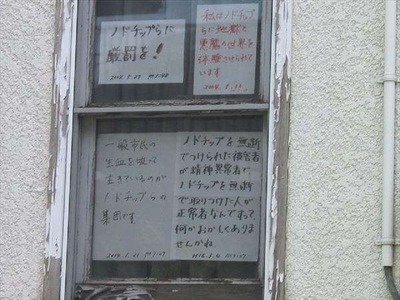 ノドチップらに
厳罰を!
私はノドチップ
らに地獄と
悪魔の世界を
体験させられて
います
一般市民の
生血を吸って
生きているのが
ノドチップらの
集団です
ノドチップを無断
でつけられた被害者
が精神異常者で
ノドチップを無断
で取りつけた人が
正常者なんですって
何かおかしくありま
せんかね